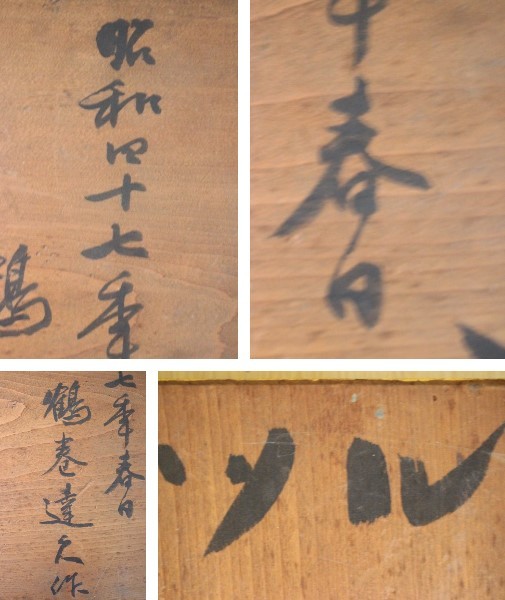 昭和四十七年
鶴
年春日
七年春日
鶴巻達久作
ツル